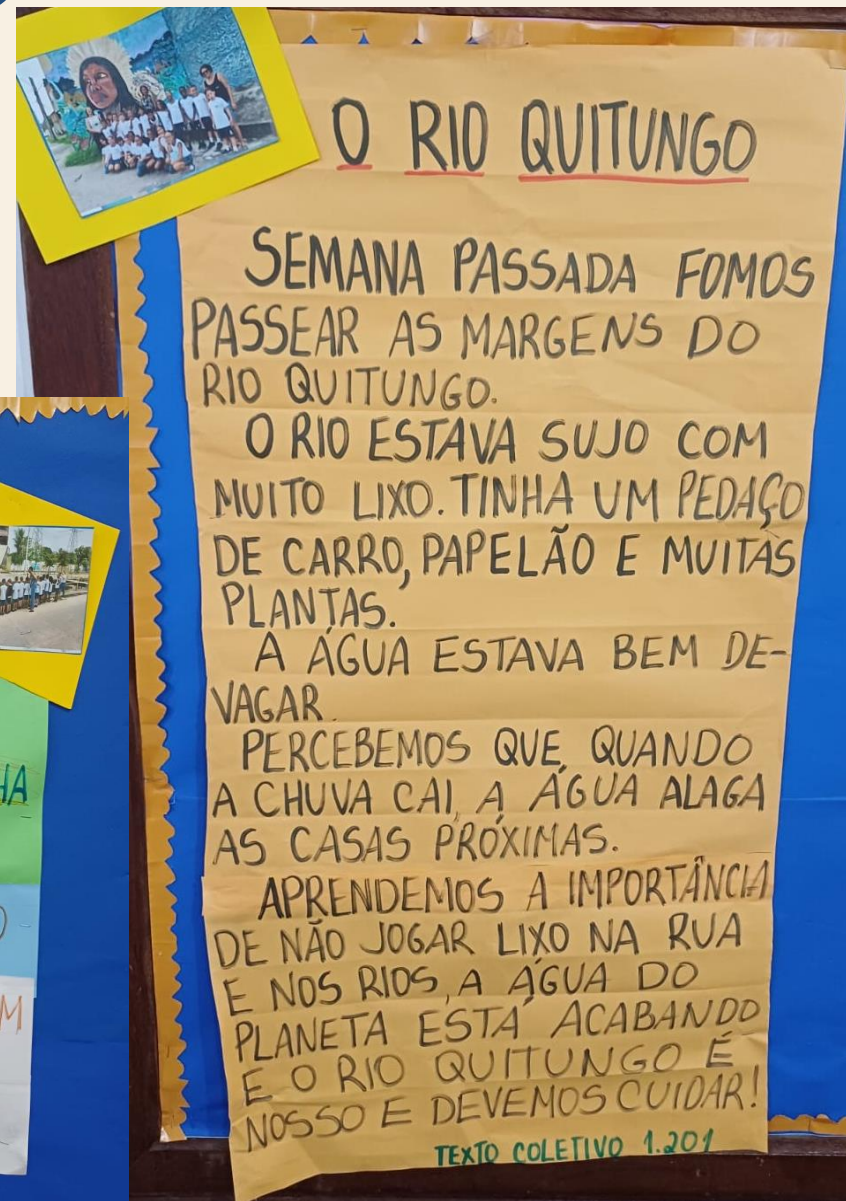 O RIO QUITUNGO
SEMANA PASSADA FOMOS
PASSEAR AS MARGENS DO
RIO QUITUNGO.
O RIO ESTAVA SUJO COM
MUITO LIXO. TINHA UM PEDAÇO
DE CARRO, PAPELÃO E MUITAS
PLANTAS.
A ÁGUA ESTAVA BEM DE-
VAGAR.
PERCEBEMOS QUE, QUANDO
A CHUVA CAI, A ÁGUA ALAGA
AS CASAS PRÓXIMAS.
APRENDEMOS A IMPORTÂNCIA
DE NÃO JOGAR LIXO NA RUA
E NOS RIOS, A ÁGUA DO
PLANETA ESTÁ ACABANDO
E O RIO QUITUNGO É
NOSSO E DEVEMOS CUIDAR!
TEXTO COLETIVO 1.201